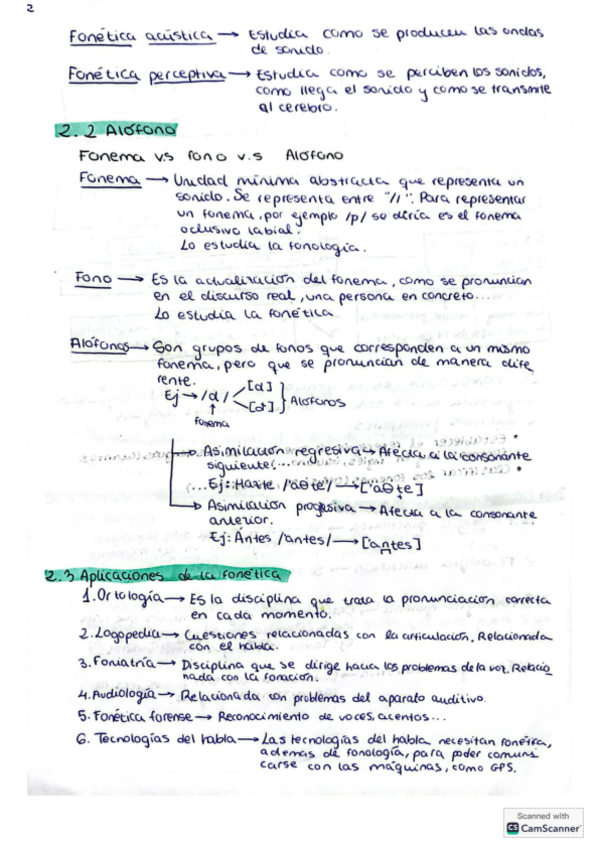 2
Fonética acústica → Estudia como se producen las ondas
de sonido.
Fonética perceptiva → Estudia como se perciben los sonidos,
como llega el sonido y como se transmite
al cerebro.
2.2 Alófono
Fonema v.s fono v.s Alófono
Fonema → Unidad mínima abstracta que representa un
sonido. Se representa entre "//". Para representar
un fonema, por ejemplo /p/ se diría es el fonema
oclusivo labial.
Lo estudia la fonología.
Fono → Es la actualización del fonema, como se pronuncian
en el discurso real, una persona en concreto...
Lo estudia la fonética.
Alófonos → Son grupos de fonos que corresponden a un mismo
fonema, pero que se pronuncian de manera dife
rente.
Ej → /d/ [d] Alófonos
fonema
Asimilación regresiva → Afecta a la consonante
siguiente...
Ej: Hazte /'aθte/ → ['aθte]
Asimilación progresiva → Afecta a la consonante
anterior.
Ej: Ántes /antes/ → [antes]
2.3 Aplicaciones de la fonética
1. Ortología → Es la disciplina que trata la pronunciación correcta
en cada momento.
2. Logopedia → Cuestiones relacionadas con la articulación. Relacionada
con el habla.
3. Foniatría → Disciplina que se dirige hacia los problemas de la voz. Relacio
nada con la fonación.
4. Audiología → Relacionada con problemas del aparato auditivo.
5. Fonética forense → Reconocimiento de voces, acentos...
6. Tecnologías del habla → Las tecnologías del habla necesitan fonética,
ademas de fonología, para poder comuni
carse con las máquinas, como GPS.
Scanned with
CS CamScanner